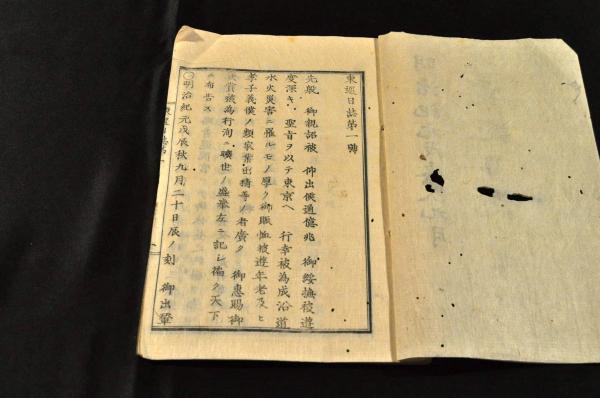 東巡日誌第一號
先般 御親詔被 仰出候通億兆 御綏撫被遊
度深キ 聖旨ヲ以テ東京ヘ 行幸被為成沿道
水火災害ニ罹ルモノ擧ク御賑恤被遊年老及ヒ
孝子義僕ノ類家業出精等ノ者廣ク 御惠賜御
賞被為行洵ニ曠世ノ盛挙左ニ記シ徧ク天下
布告ス
〇明治紀元戊辰秋九月二十日辰ノ刻 御出輦